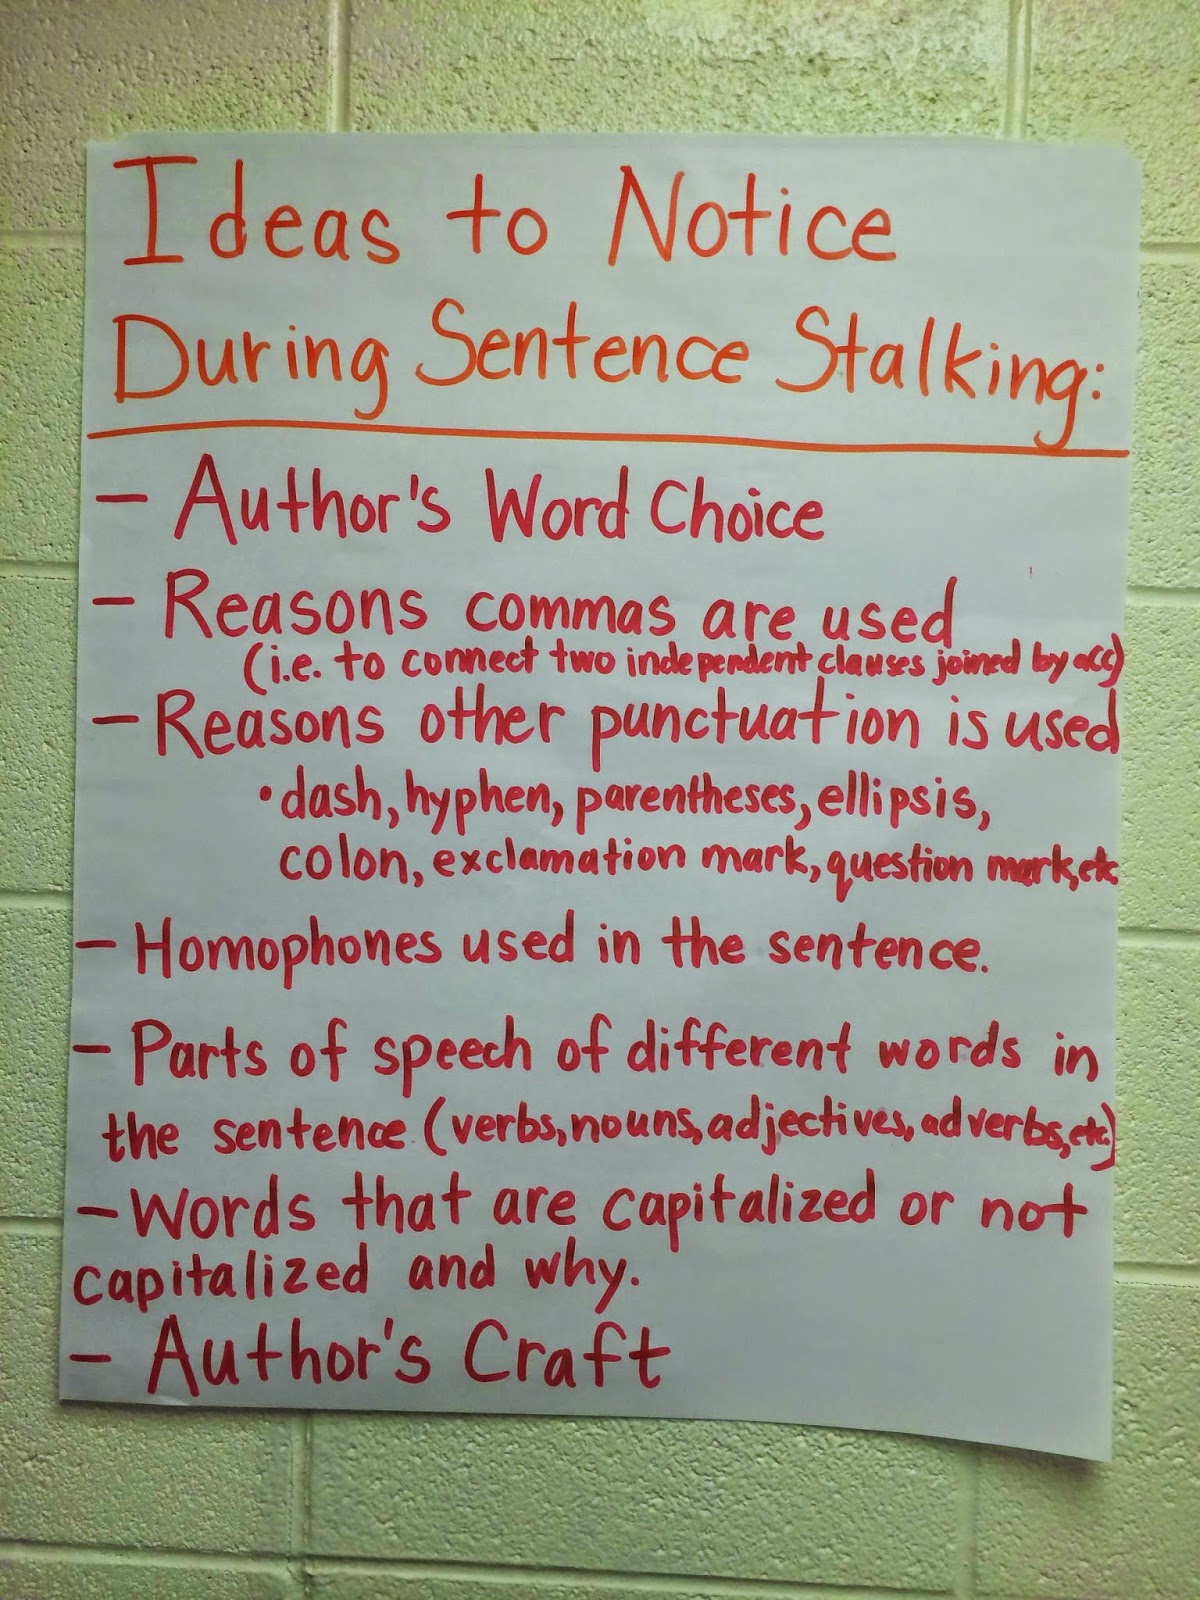 Ideas to Notice
During Sentence Stalking:
- Author's Word Choice
- Reasons commas are used
(i.e. to connect two independent clauses joined by a CC)
- Reasons other punctuation is used
• dash, hyphen, parentheses, ellipsis,
colon, exclamation mark, question mark, etc
- Homophones used in the sentence.
- Parts of speech of different words in
the sentence (verbs, nouns, adjectives, adverbs, etc.)
- Words that are capitalized or not
capitalized and why.
- Author's Craft